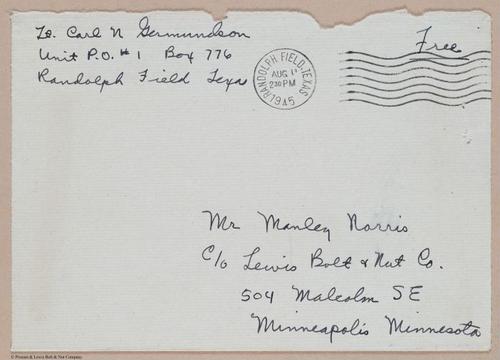 Lt. Carl N Germundson
Unit P.O. #1 Box 776
Randolph Field Texas
RANDOLPH FIELD, TEXAS
AUG
230 PM
1945
Free
Mr Manley Norris
C/o Lewis Bolt & Nut Co.
504 Malcolm SE
Minneapolis Minnesota
© Proman & Lewis Bolt & Nut Company